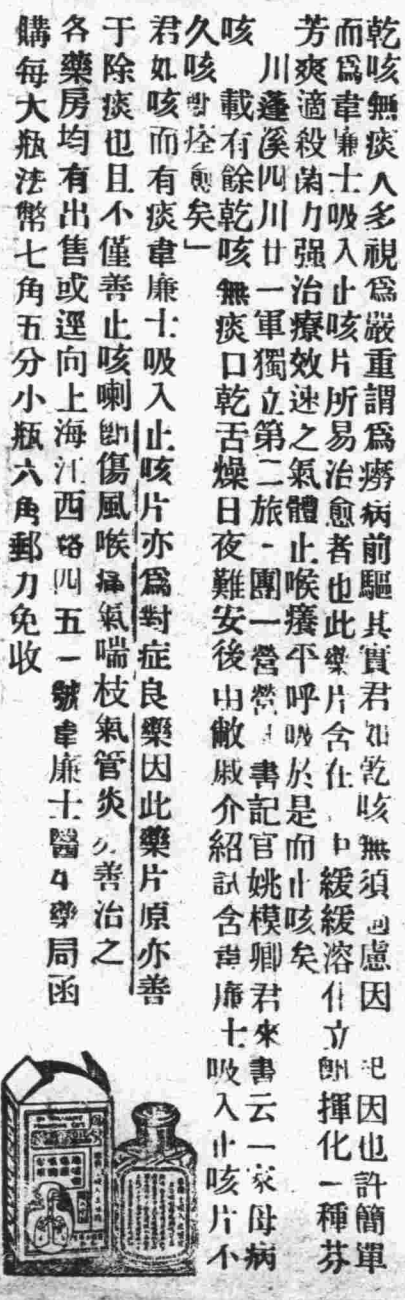 乾咳無痰人多視爲嚴重謂爲癆病前驅其實君如乾咳無須過慮因 因也許簡單
而爲韋廉士吸入止咳片所易治愈者也此藥片含在 中緩緩溶化立卽揮化一種芬
芳爽適殺菌力强治療效速之氣體止喉癢平呼吸於是而止咳矣
川蓬溪四川廿一軍獨立第二旅一團一營營 書記官姚模卿君來書云「家母病
咳 載有餘乾咳無痰口乾舌燥日夜難安後由敝戚介紹試含韋廉士吸入止咳片不
久咳 痊愈矣」
君如咳而有痰韋廉士吸入止咳片亦爲對症良藥因此藥片原亦善
于除痰也且不僅善止咳喇卽傷風喉痛氣喘枝氣管炎亦善治之
各藥房均有出售或逕向上海江西路四五一號韋廉士醫生藥局函
購每大瓶法幣七角五分小瓶六角郵力免收